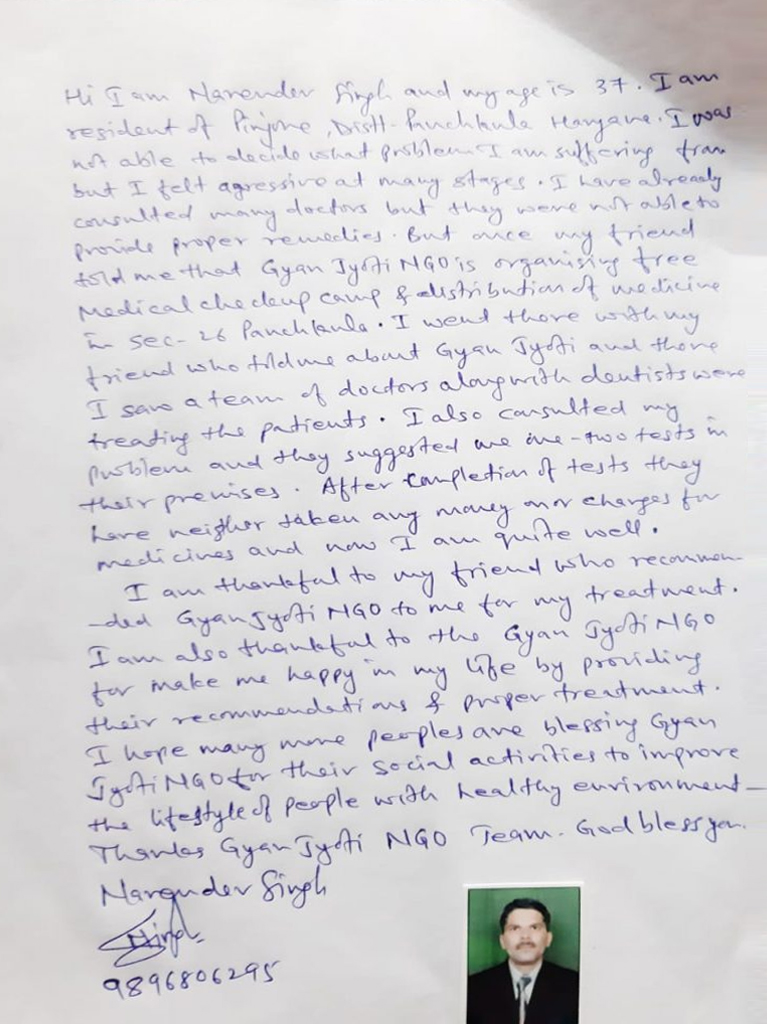 Hi I am Narender Singh and my age is 37. I am
resident of Pinjore, Distt- Panchkula Haryana. I was
not able to decide what problem I am suffering from
but I felt agressive at many stages. I have already
consulted many doctors but they were not able to
provide proper remedies. But once my friend
told me that Gyan Jyoti NGO is organising free
Medical checkup camp & distribution of medicine
in Sec-26 Panchkula. I went there with my
friend who told me about Gyan Jyoti and there
I saw a team of doctors along with dentists were
treating the patients. I also consulted my
problem and they suggested me one-two tests in
their premises. After completion of tests they
have neither taken any money nor charges for
medicines and now I am quite well.
I am thankful to my friend who recommen-
-ded Gyan Jyoti NGO to me for my treatment.
I am also thankful to the Gyan Jyoti NGO
for make me happy in my life by providing
their recommendations & proper treatment.
I hope many more peoples are blessing Gyan
Jyoti NGO for their social activities to improve
the lifestyle of people with healthy environment-
Thanks Gyan Jyoti NGO Team. God bless you.
Narender Singh
9896806295